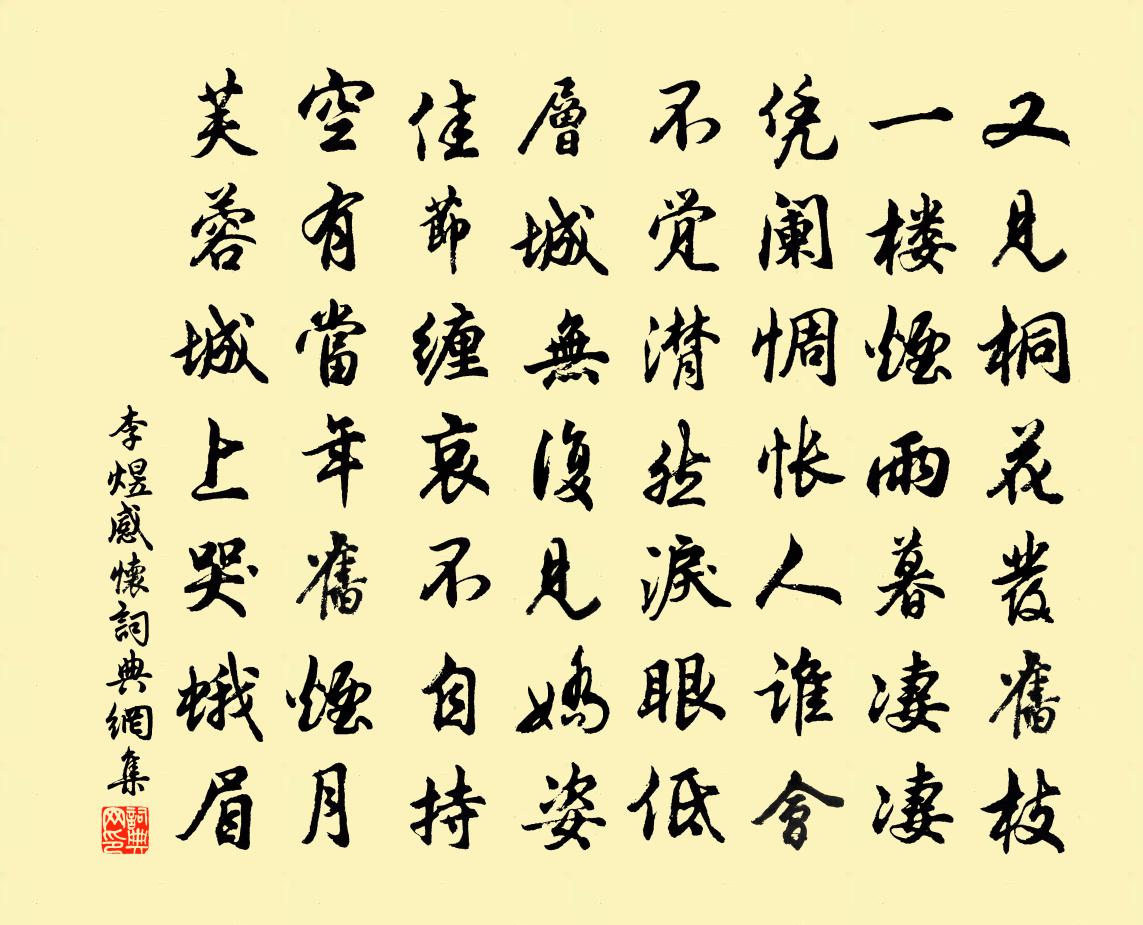 又見桐花發舊枝
一楼煙雨暮凄凄
凭阑惆怅人誰會
不觉潸然淚眼低
層城無復見嬌姿
佳節纏哀不自持
空有當年舊煙月
芙蓉城上哭蛾眉
李煜感懷詞典網集
詞典網印